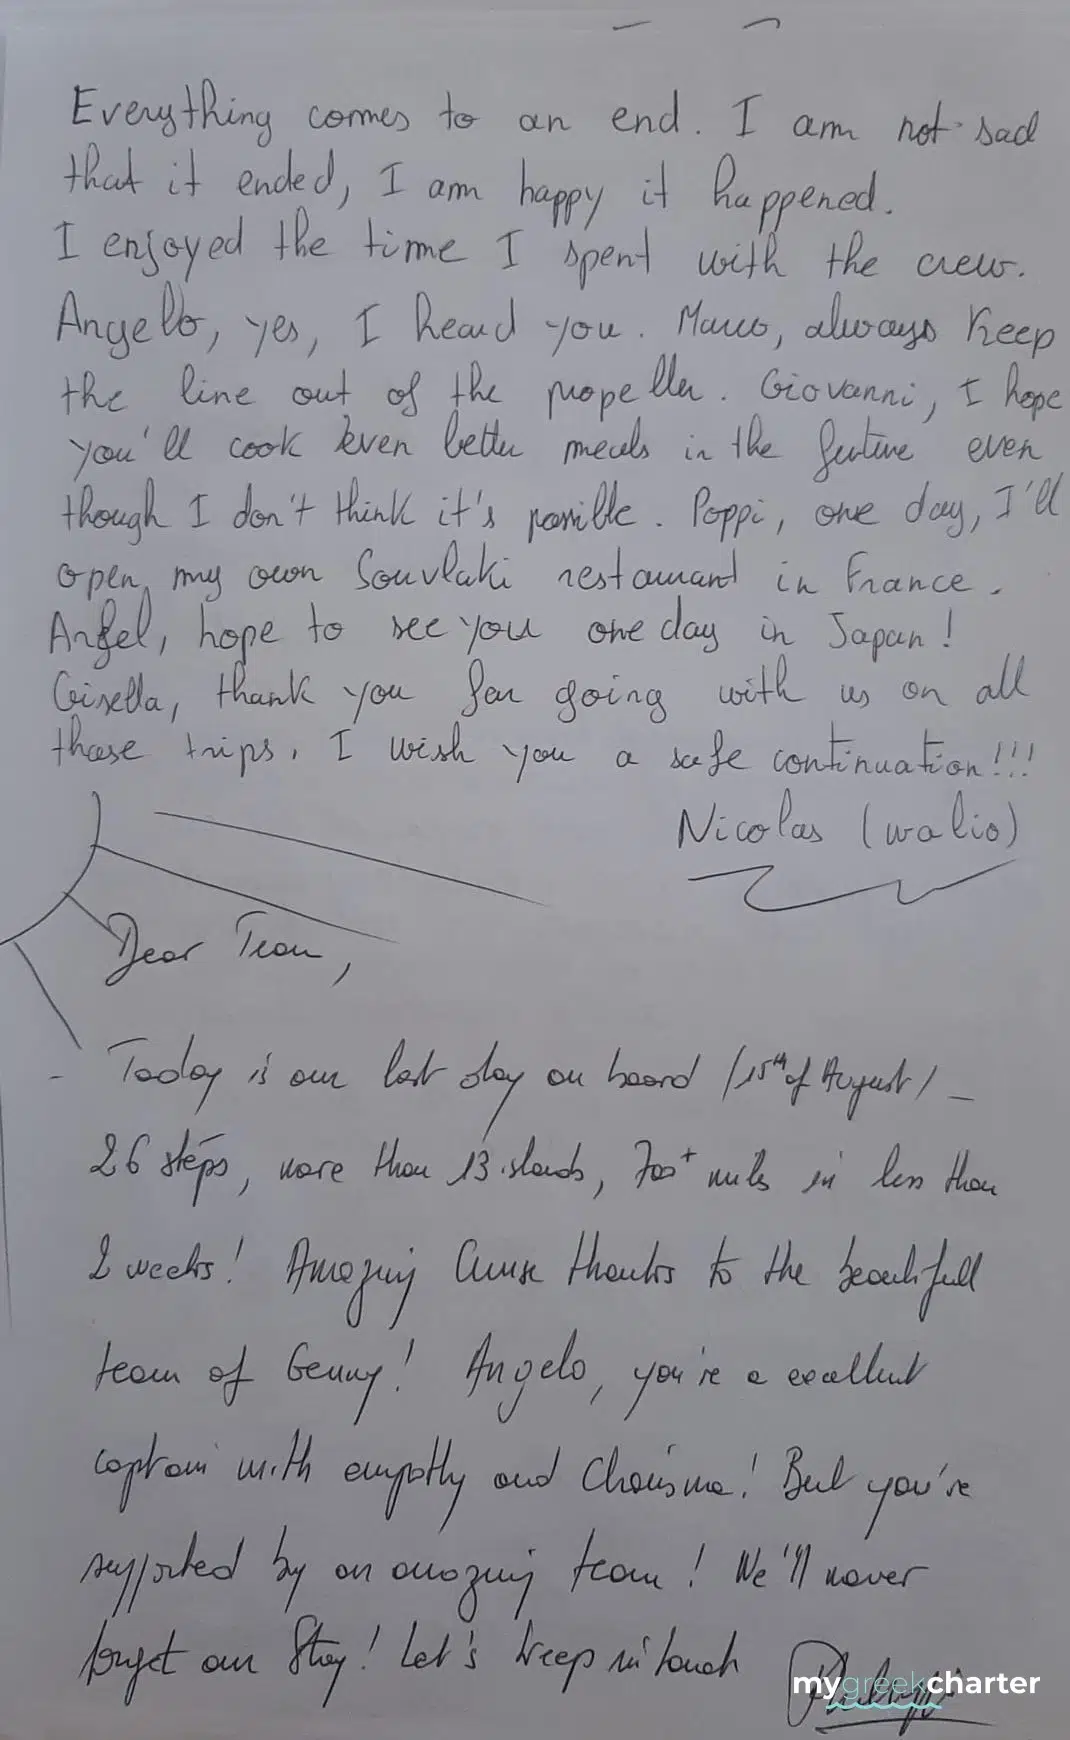 Everything comes to an end. I am not sad
that it ended, I am happy it happened.
I enjoyed the time I spent with the crew.
Angelo, yes, I heard you. Marco, always Keep
the line out of the propeller. Giovanni, I hope
you'll cook even better meals in the future even
though I don't think it's possible. Poppi, one day, I'll
open my own Souvlaki restaurant in France.
Angel, hope to see you one day in Japan!
Gisella, thank you for going with us on all
those trips. I wish you a safe continuation!!!
Nicolas (walio)
Dear Team,
- Today is our last day on board (15th of August) -
26 steps, more than 13 islands, 700+ miles in less than
2 weeks! Amazing Cruise thanks to the beautifull
team of Genny! Angelo, you're a excellent
captain with empathy and Charisma! But you're
supported by an amazing team! We'll never
forget our Stay! Let's keep in touch
mygreekcharter